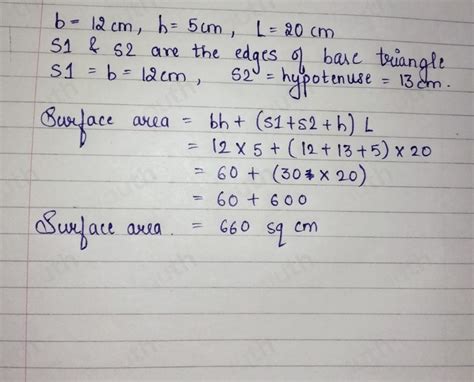 b = 12 cm, h = 5 cm, L = 20 cm
S1 & S2 are the edges of base triangle
S1 = b = 12 cm, S2 = hypotenuse = 13 cm.
Surface area = bh + (S1+S2+h) L
= 12 × 5 + (12+13+5) × 20
= 60 + (30 × 20)
= 60 + 600
Surface area = 660 sq cm